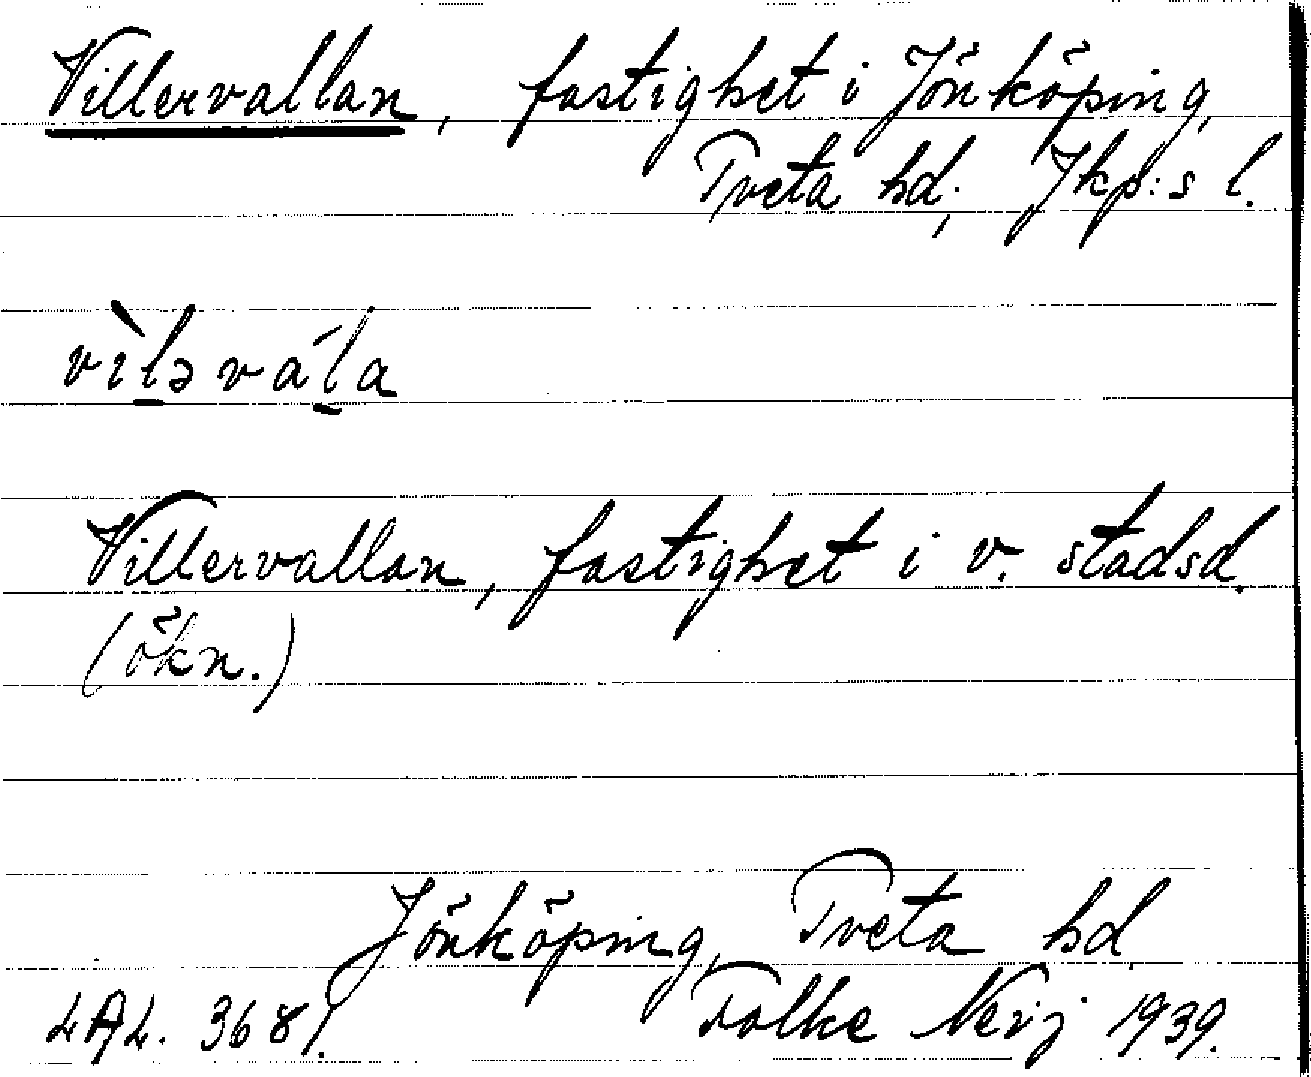 Villervallan, fastighet i Jönköping,
Tveta hd, Jkp:s l.
vìləvála
Villervallan, fastighet i v. stadsd.
(ökn.)
Jönköping, Tveta hd
LAL. 3681. Folke Nerj 1939.